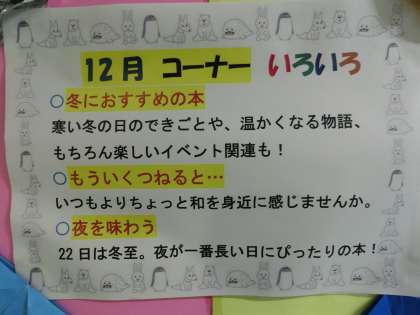 12月 コーナー いろいろ
○冬におすすめの本
寒い冬の日のできごとや、温かくなる物語、
もちろん楽しいイベント関連も!
○もういくつねると…
いつもよりちょっと和を身近に感じませんか。
○夜を味わう
22日は冬至。夜が一番長い日にぴったりの本!